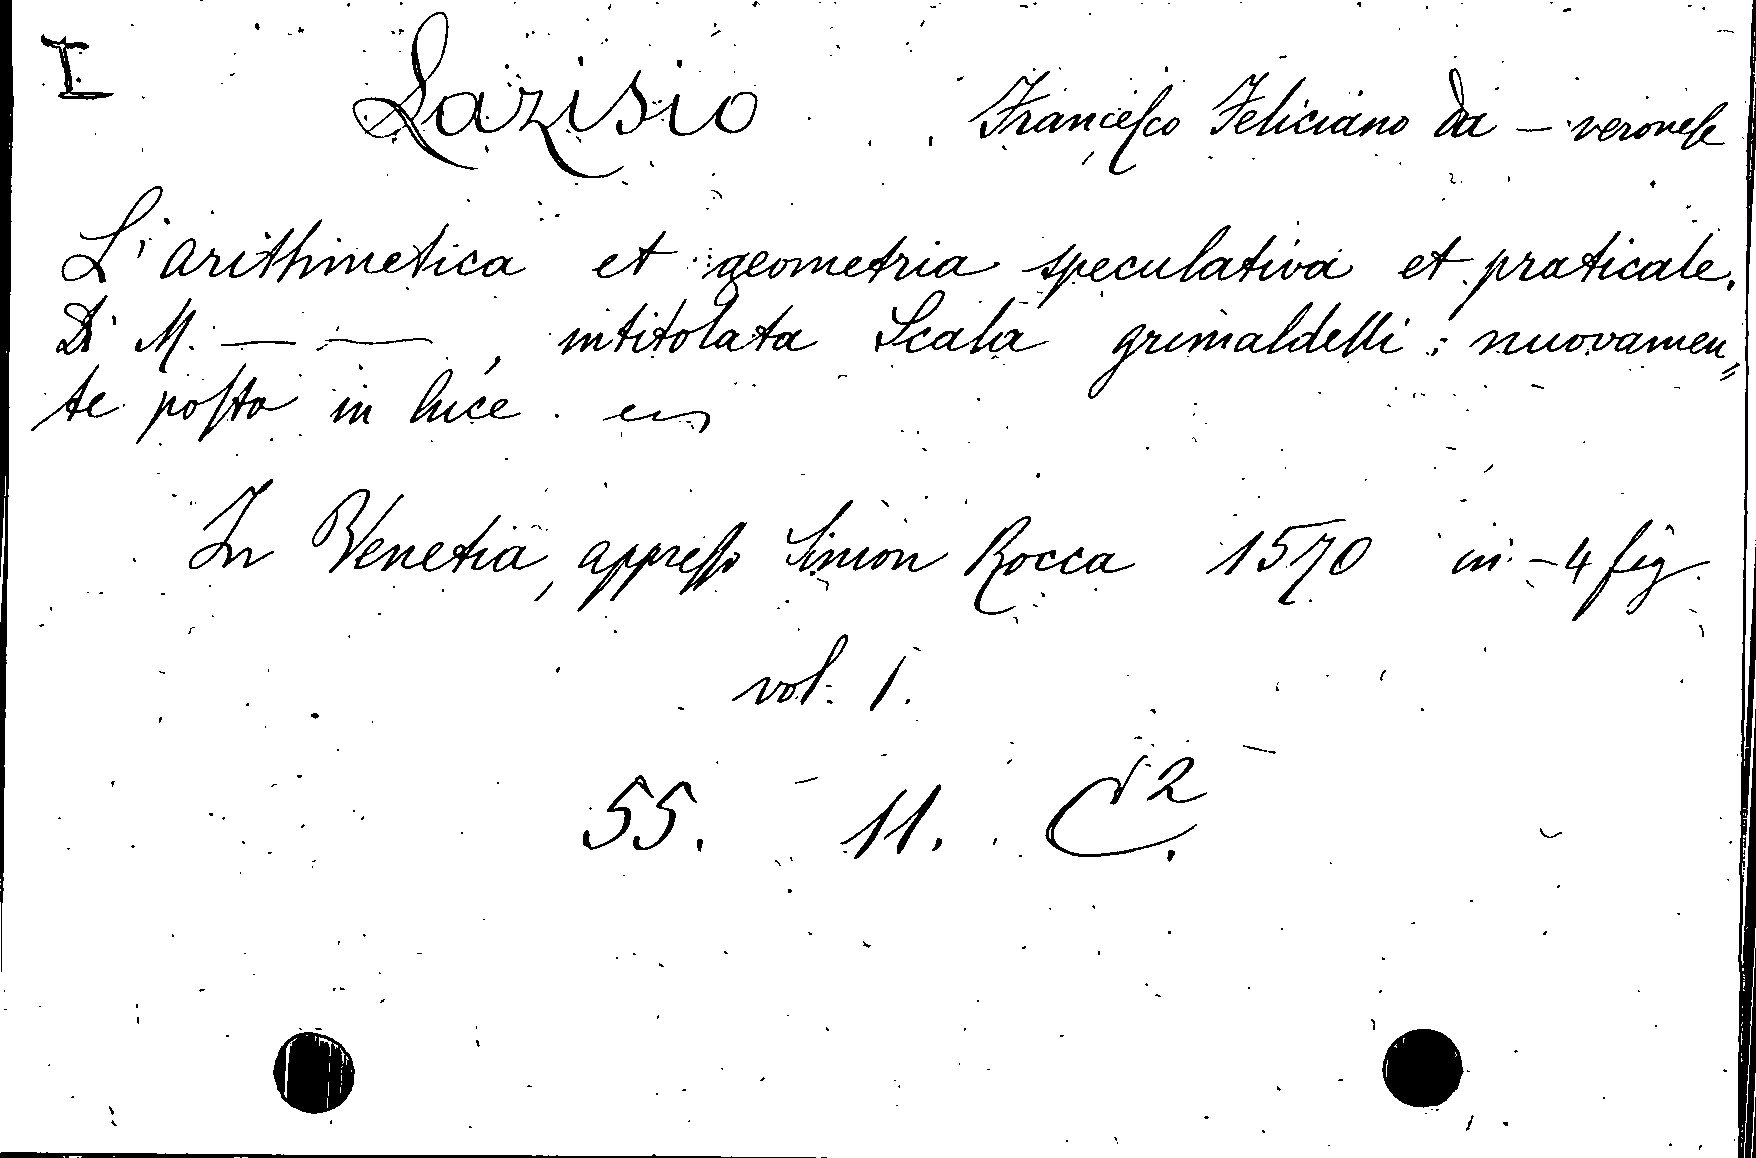 I Lazisio Francesco Feliciano da — veronese
L'arithmetica et geometria speculativa et praticale.
Di M. — — , intitolata Scala grimaldelli : nuovamen„
te posto in luce.
In Venetia, appresso Simon Rocca 1570 in-4 fig.
vol. 1.
55. 11. C 2.